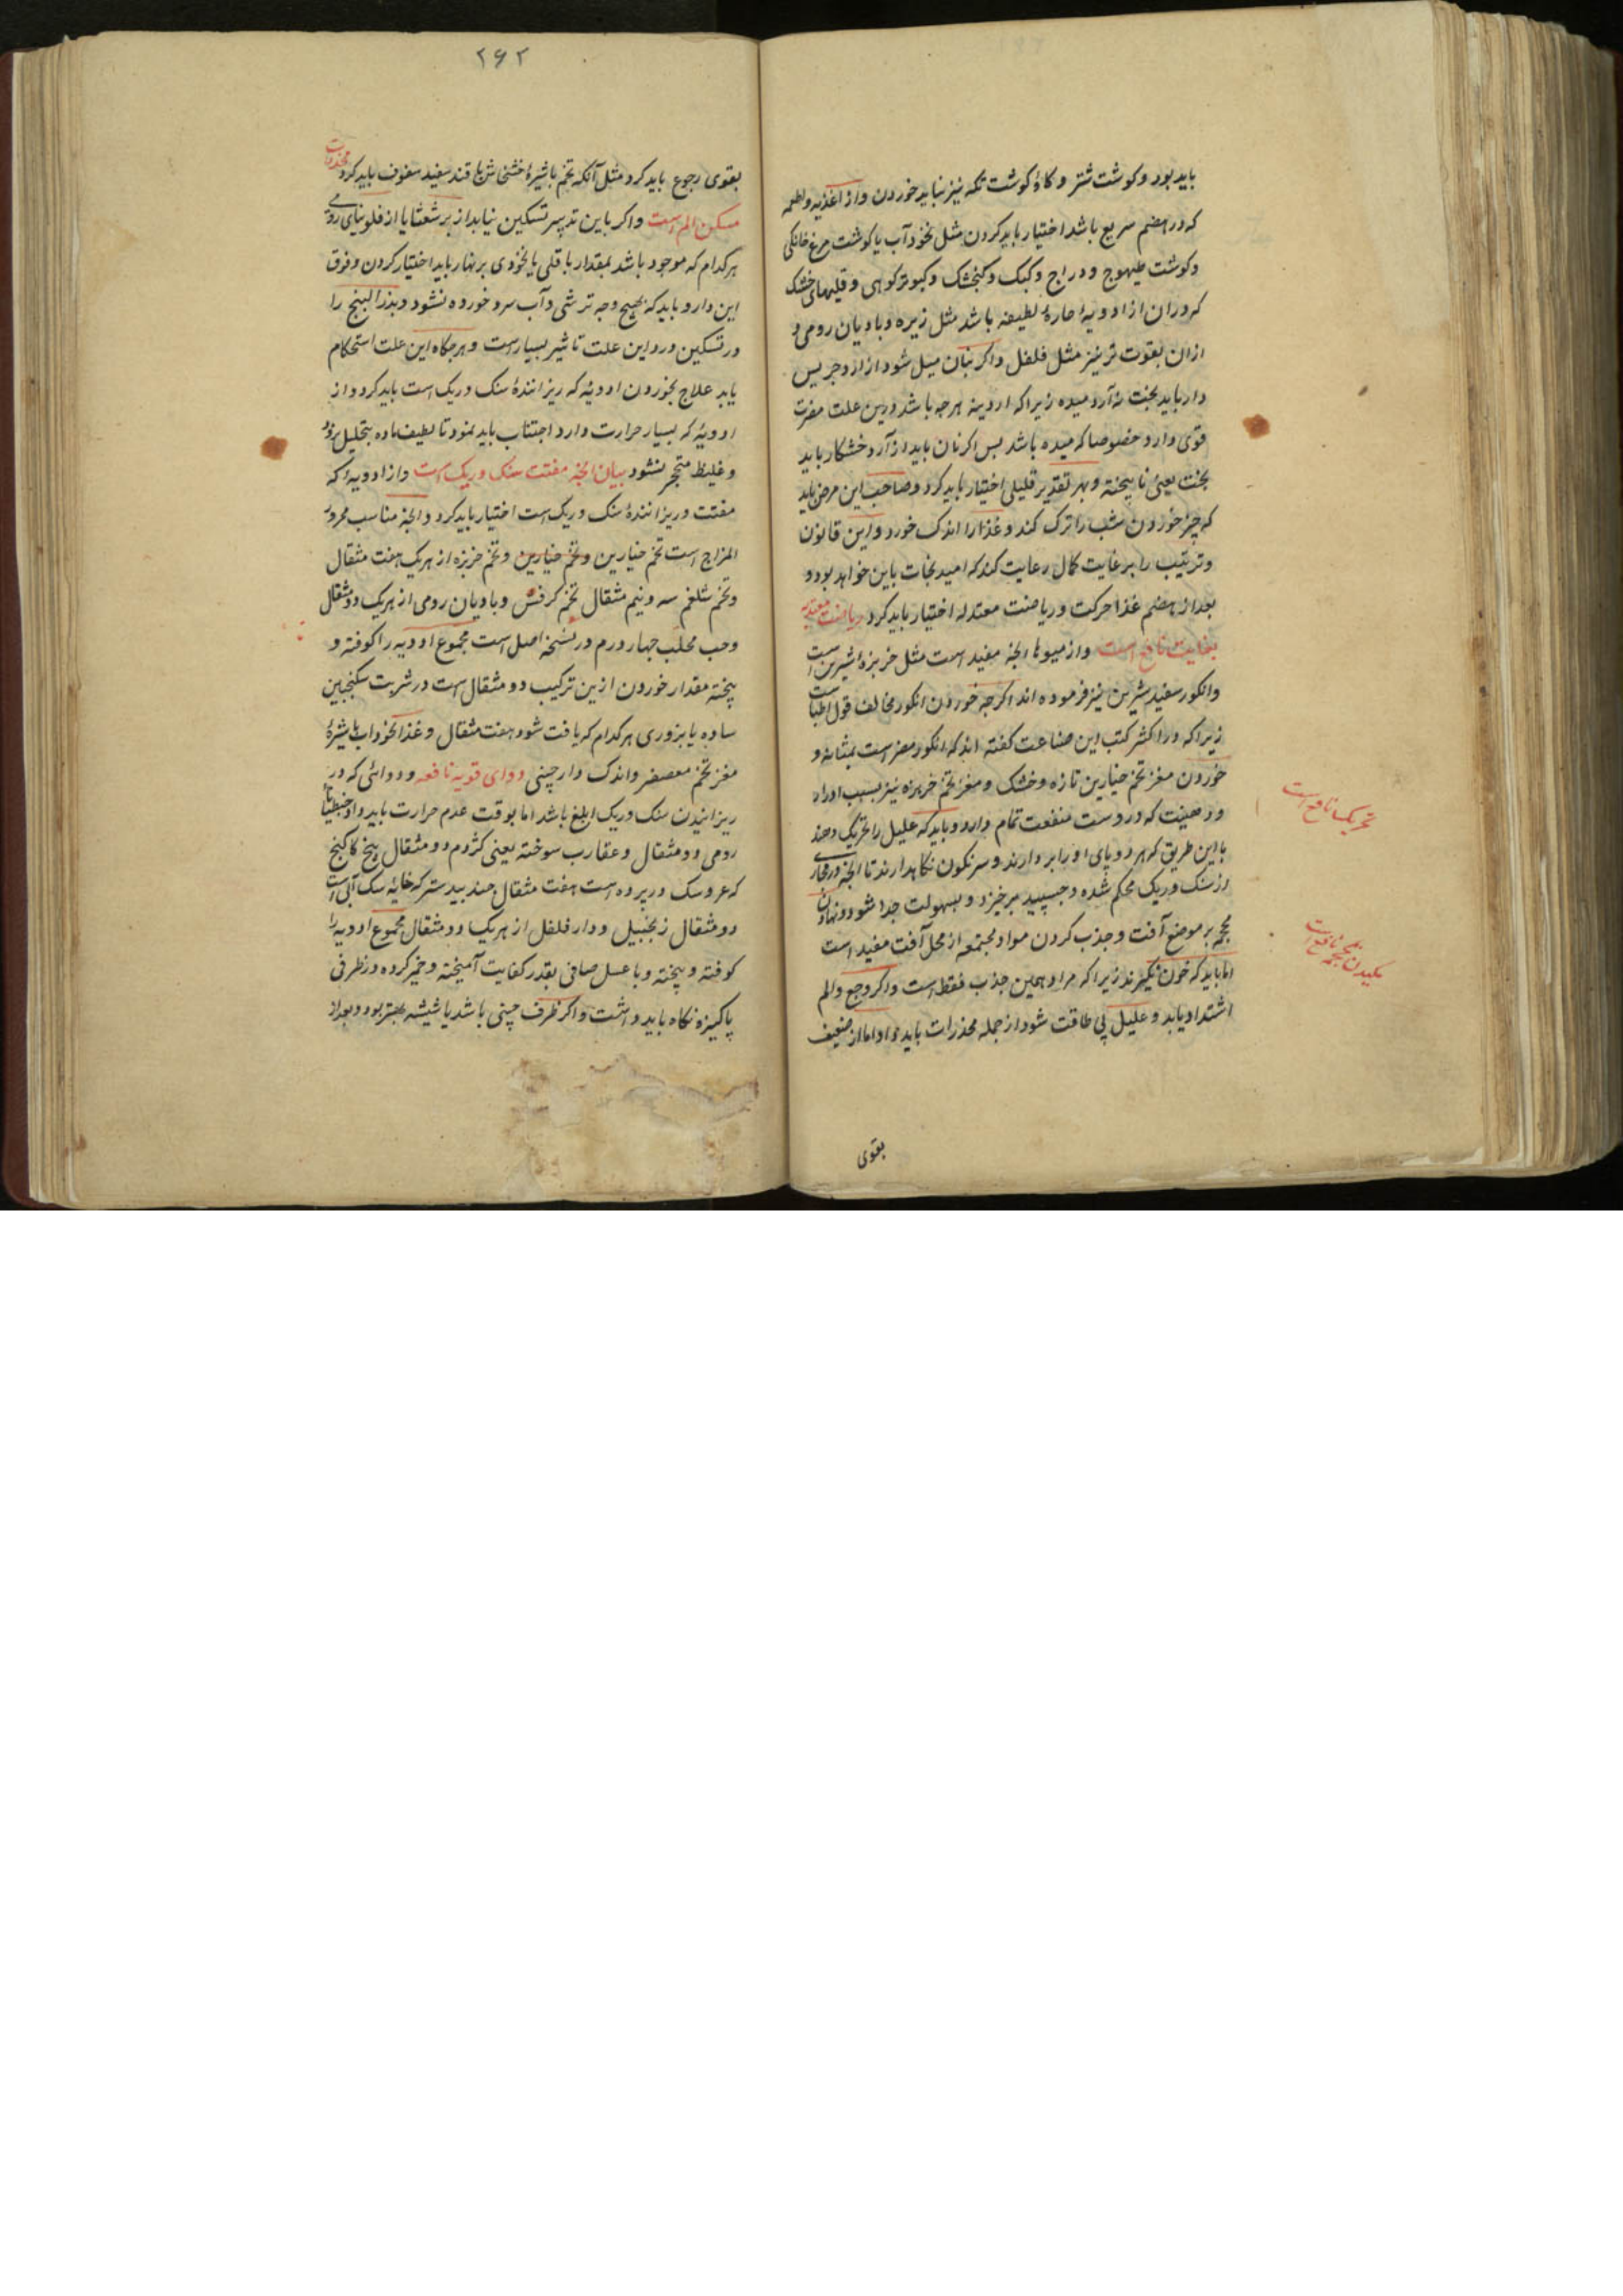 باید بود و کوشت شتر و کاؤ کوشت تکه نیز نباید خوردن و از اغذیه و اطمه
که در هضم سریع باشد اختیار باید کردن مثل نخود آب یا کوشت مرغ خانکی
و کوشت طیهوج و دراج و کبک و کنجشک و کبوتر کوهی و قلیهای خشک
که در ان از ادویهٔ حارهٔ لطیفه باشد مثل زیره و بادیان رومی و
ازان بقوت تر نیز مثل فلفل و اکر بنان میل شود از ارد جریس
دار باید بخت نه آرد میده زیرا که اردینه هرجه باشد درین علت مضرت
قوی دارد خصوصا که میده باشد بس اکر نان باید از آرد خشکار باید
بخت یعنی نا بیخته و بهر تقدیر قلیلی اختیار باید کرد و صاحب این مرض باید
که چیز خوردن شب را ترک کند و غذا را اندک خورد و این قانون
و ترتیب را بر غایت کمال رعایت کند که امید نجات باین خواهد بود و
بعد از هضم غذا حرکت و ریاضت معتدله اختیار باید کرد ریاضت معتدله
بغایت نافع است و از میوها انجه مفید است مثل خربزهٔ شیرین است
و انکور سفید شیرین نیز فرموده اند اکرجه خوردن انکور مخالف قول اطباست
زیرا که در اکثر کتب این صناعت کفته اند که انکور مضر است بمثانه و
خوردن مغز تخم خیارین تازه و خشک و مغز تخم خربزه نیز بسبب ادرار
و رهنیت که در وست منفعت تمام دارد و باید که علیل را تحریک دهند
باین طریق که هر دو پای او را بر دارند و سرنکون نکاهدارند تا انجه در مجاری
از سنک و ریک محکم شده و جسپید بر خیزد و بسهولت جدا شود و نهادن
محجمه بر موضع آفت و جذب کردن مواد مجتمعه از محل آفت مفید است
اما باید که خون نکیرند زیرا که مراد همین جذب فقط است و اکر وجع و الم
اشتداد یابد و علیل بی طاقت شود از جمله مخدرات باید داد اما از ضعیف
بقوی
تحریک نافع است
مکیدن محجمه نافع است
۲۶۲
بقوی رجوع باید کرد مثل آنکه تخم باشیرهٔ خشخاش با قند سفید سفوف باید کرد مخدرات
مسکن الم است و اکر باین تدبیر تسکین نیابد از برشعثا یا از فلونیای رومی
هر کدام که موجود باشد بمقدار باقلی یا نخودی بر نهار باید اختیار کردن و فوق
این دارو باید که بهیج وجه ترشی و آب سرد خورده نشود و بذر البنج را
در تسکین درد این علت تاثیر بسیار است و هرجکاه این علت استحکام
یابد علاج بخوردن ادویهٔ که ریزانندهٔ سنک و ریک است باید کرد و از
ادویهٔ که بسیار حرارت دارد اجتناب باید نمود تا لطیف ماده بتحلیل نرود
و غلیظ متحجر نشود بیان انجه مفتت سنک و ریک است و از ادویهٔ که
مفتت و ریزانندهٔ سنک و ریک است اختیار باید کرد و انجه مناسب محرور
المزاج است تخم خیارین و تخم خیارین و تخم خربزه از هر یک هفت مثقال
و تخم شلغم سه و نیم مثقال تخم کرفس و بادیان رومی از هر یک دو مثقال
و حب محلب جهار درم در نسخه اصل است مجموع ادویه را کوفته و
بیخته مقدار خوردن ازین ترکیب دو مثقال است در شربت سکنجبین
ساده یا بزوری هر کدام که یافت شود هفت مثقال و غذا نخوداب با شیرهٔ
مغز تخم معصفر و اندک دارچینی دوای قویه نافعه و دوائی که در
ریزانیدن سنک و ریک ابلغ باشد اما بوقت عدم حرارت باید داد جنطیانا
رومی دو مثقال و عقارب سوخته یعنی کژدم دو مثقال بیخ کاکنج
که عروسک در پرده است هفت مثقال جند بیدستر که خایه سک آبی است
دو مثقال زنجبیل و دارفلفل از هر یک دو مثقال مجموع ادویه را
کوفته و بیخته و با عسل صافی بقدر کفایت آمیخته و خمیر کرده در ظرفی
پاکیزه نکاه باید داشت و اکر ظرف چینی باشد یا شیشه بهتر بود و بعد از